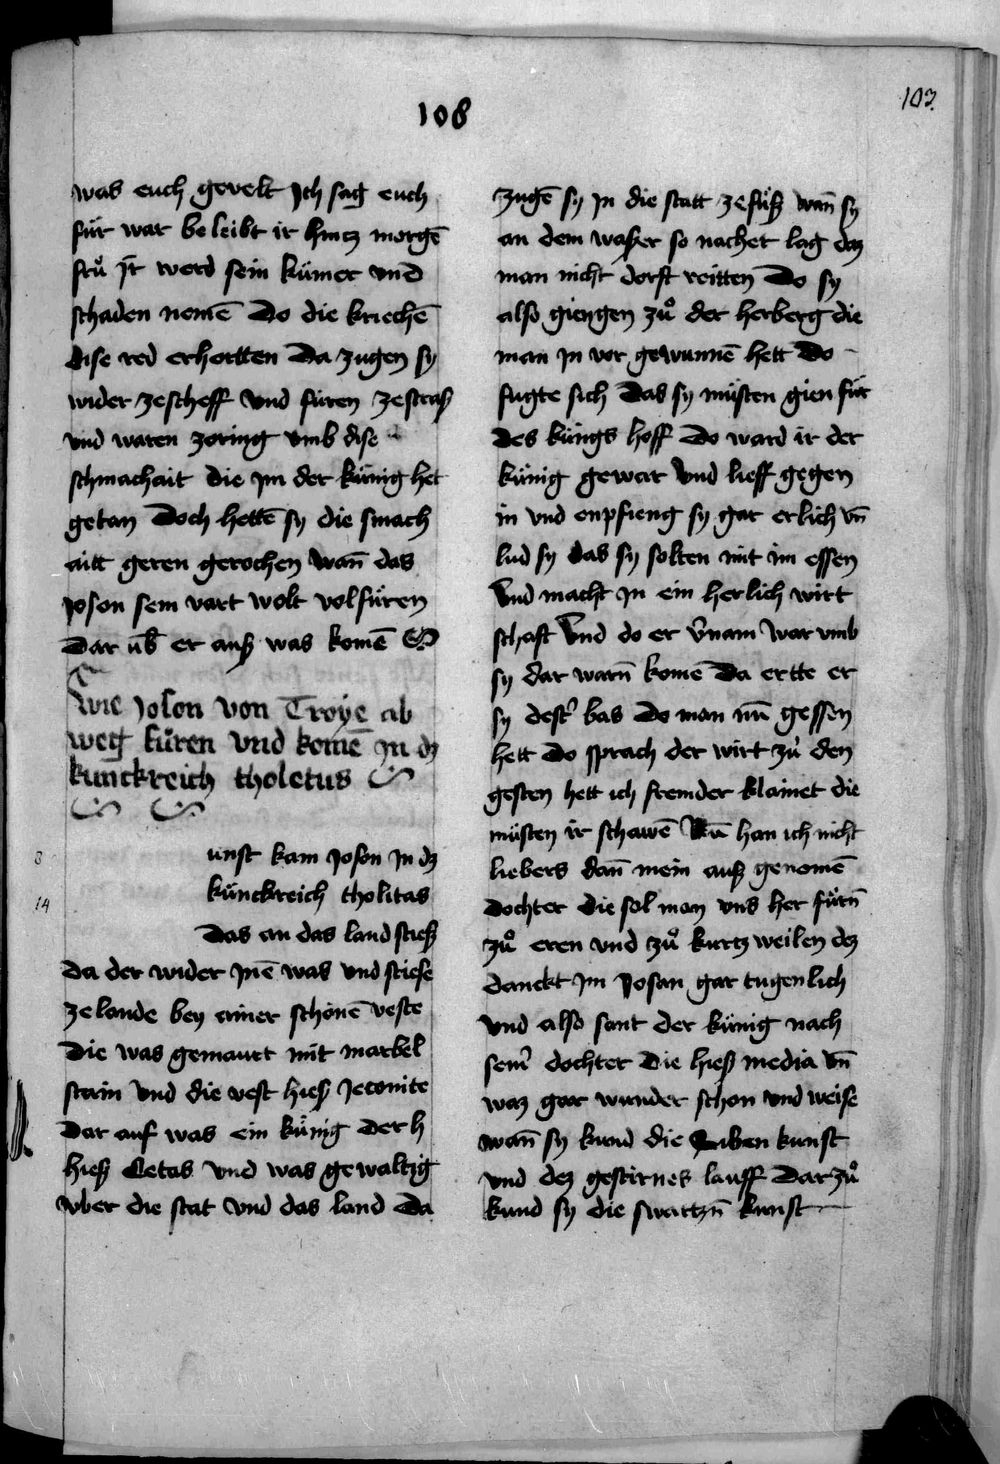 108
103.
was euch gevelt Ich sag euch
für war beleibt ir hintz morgē
frů ir werd sein kümer vnd
schaden nemē Do die kriechē
dise red erhortten Da zugen sy
wider zescheff Vnd füren zestraß
vnd waren zornig vmb dise
schmachait die im der künig het
getan Doch hettē sy die smach
aitt geren gerochen Wan̄ das
Joson sein vart wolt volfüren
Dar ūb er auß was komē
Wie Joson von Troye ab
weg fůren vnd komē in dz
kunckreich tholetus
8
unst kam Joson in dz
künckreich tholitas
14
Das an das land stieß
Da der wider Inē was vnd stiese
ze lande bey ainer schönē veste
Die was gemaurt mit marbel
stain Vnd die vest hieß Jeconite
Dar auf was ein künig der h
hieß Oetas Vnd was gewaltig
vber die stat Vnd das land Da
zugē sy in die statt zefüß wan̄ sy
an dem waßer so nachet lag dz
man nicht dorft reitten Do sy
also giengen zů der herberg die
man in vor gewunnē hett Do
fugte sich Das sy müsten gien für
des küngs hoff Do ward ir der
künig gewar Vnd lieff gegen
in vnd enpfieng sy gar erlich vn̄
lud sy das sy solten mit im essen
Vnd macht in ein herlich wirt
schaft Vnd do er v̄nam War vmb
sy dar warn̄ komē Da ertte er
sy dest' bas Do man nū gessen
hett Do sprach der wirt zů den
gesten hett ich fremder klainet die
müsten ir schawē Nū han ich nicht
liebers dan̄ mein auß genomē
dochter die sol man vns her fürn̄
zů eren vnd zů kurtzweilen dez
danckt im Josan gar tugenlich
Vnd also sant der künig nach
sein' dochter Die hieß media vn̄
waz gar wunder schon vnd weise
wan̄ sy kund die siben kunst
vnd dez gestirnes lauff Dar zů
kund sy die swartzn̄ kunst